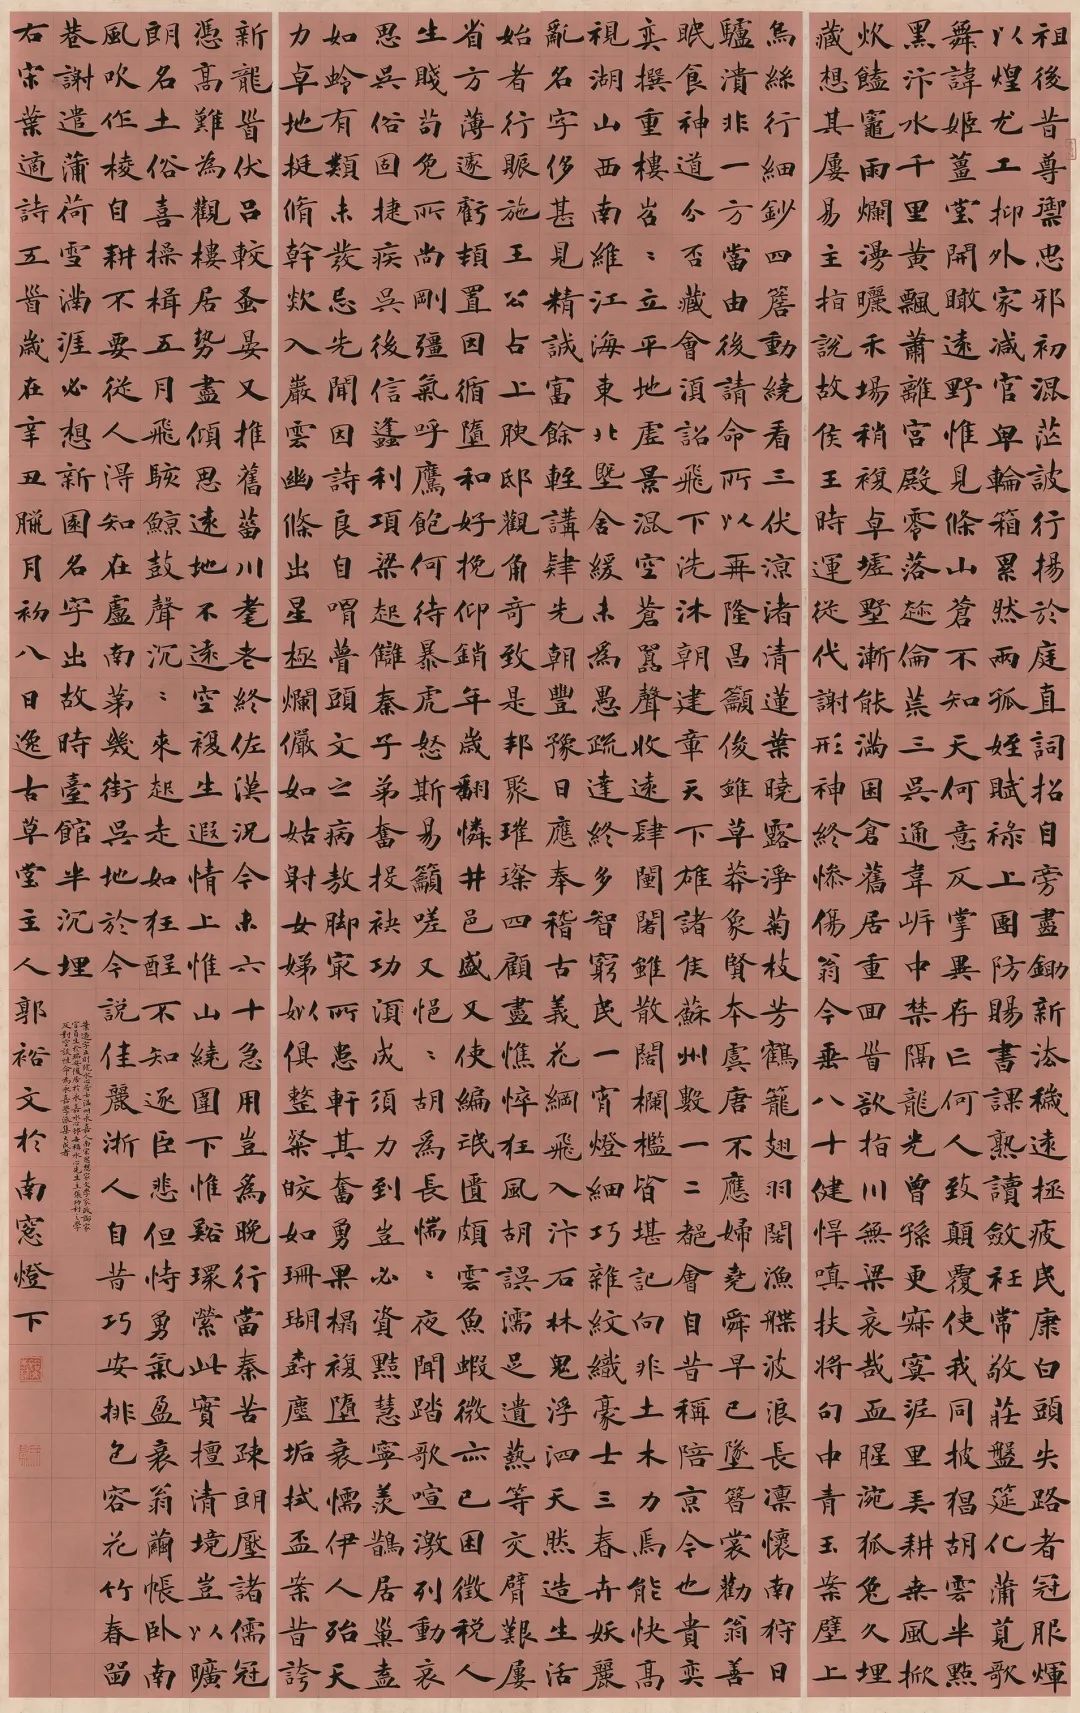 祖後昔尊禦思邪初混茫詖行揚於庭直詞招自旁盡鋤新法穢遠極疲民康白頭失路者冠服煇
以煌尤工抑外家減官卑輪箱累然兩孤姪賦祿上團防賜書課熟讀斂衽常敬莊盤筵化蒲萈歌
舞諱姬薑堂開瞰遠野惟見條山蒼不知天何意反掌異存亡何人致顛覆使我同披猖胡雲半點
黑汴水千里黃飄蕭離宮殿零落趂倫荒三吳通韋岍中禁隔龍光曾孫更寂寞泥里弄耕桒風掀
炊饁竈雨爛澷曬禾場稍複卓墟墅漸能滿囷倉舊居重回首欲指川無梁哀哉血腥涴狐兔久埋
藏想其屢易主指說故侯王時運從代謝形神終慘傷翁今垂八十健悍嗔扶將句中青玉案壁上
烏絲行細鈔四簷動繞看三伏涼渚清蓮葉曉露淨菊枝芳鶴籠翅羽闊漁艓波浪長凜懷南狩日
驢潰非一方當由後請命所以再隆昌籲俊雖草莽象賢本虞唐不應婦堯舜早已墜簪裳勸翁善
眠食神道分否藏會湏詔飛下洗沐朝建章天下雄諸侯蘇州數一二都會自昔稱陪京今也貴奕
奕撰重樓岧〻立平地虛景混空蒼嚣聲收遠肆闤闍雖散闊欄檻皆堪記向非土木力焉能快高
視湖山西南維江海東北墍舍緩未為愚疏達終多智窮民一宵燈細巧雜紋織豪士三春卉妖麗
亂名字侈甚見精誠富餘輕講肆先朝豐豫日應奉稽古義花綱飛入汴石林鬼浮泗天然造生活
始者行賑施王公占上腴邸觀角奇致是邦聚璀璨四顧盡憔悴狂風胡誤濡足遺爇等交臂艱屢
省方薄逐虧頛置因循墮和好挽仰銷年歲翻憐井邑盛又使編氓匱頗雲魚蝦微亦已困徵税人
生賤苟免所尚剛彊氣呼鷹飽何待暴虎怒斯易籲嗟又悒〻胡為長惴〻夜聞踏歌喧激列動哀
思吳俗固捷疾吳後信蠭利項梁起讎秦子弟奮投袂功湏成須力到豈必資黠慧寧羨鵲居巢盍
如蛉有類未發忌先聞因詩良自喟瞢頭文之病敖脚㝡所患軒其奮勇果榻複墮衰懦伊人殆天
力卓地挺脩幹欻入嚴雲幽倏出星極爛儼如姑射女娣姒俱整粲皎如珊瑚封塵垢拭盃案昔誇
新龍首伏呂較蚤晏又推舊蕃川耄老終佐漢況今未六十急用豈為晚行當秦苦疎朗壓諸儒冠
憑高難為觀樓居勢盡傾思遠地不遠空複生遐情上惟山繞圍下惟谿環縈此實擅清境豈以曠
朗名土俗喜操楫五月飛駭鯨鼓聲沉〻來起走如狂酲不知逐臣悲但恃勇氣盈衰翁繭帳卧南
風吹作棱自耕不要從人得知在盧南第幾街吳地於今説佳麗浙人自昔巧安排包容花竹春畱
巷謝遣蒲荷雪滿涯必想新園名字出故時臺館半沉埋
右宋葉適詩五首歲在辛丑臘月初八日逸古草堂主人郭裕文於南窓燈下